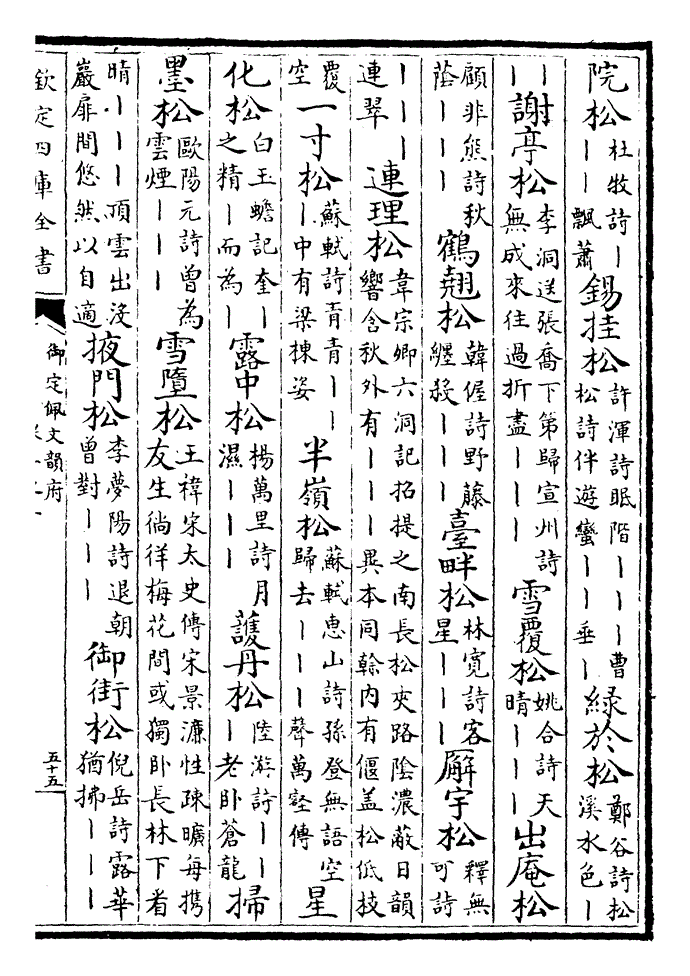 院松杜牧詩｜｜｜飄蕭錫挂松許渾詩眠階｜｜｜曹松詩伴遊蠻｜｜垂｜綠於松鄭谷詩松溪水色｜
｜｜謝亭松李洞送張喬下第歸宣州詩無成來往過折盡｜｜｜雪覆松姚合詩天晴｜｜｜出庵松
顧非熊詩秋蔭｜｜｜鶴翹松韓偓詩野藤纏殺｜｜｜臺畔松林寬詩客星｜｜｜廨宇松釋無可詩
｜｜｜連翠連理松韋宗卿六洞記招提之南長松夾路陰濃蔽日韻響含秋外有｜｜｜異本同榦内有偃盖松低技
覆空一寸松蘇軾詩青青｜｜｜中有梁棟姿半嶺松蘇軾惠山詩孫登無語空歸去｜｜｜聲萬壑傳星
化松白玉蟾記奎｜之精｜而為｜露中松楊萬里詩月濕｜｜｜護丹松陸游詩｜｜｜老卧蒼龍掃
墨松歐陽元詩曾為雲煙｜｜｜雪墮松王禕宋太史傳宋景濂性疎曠每携友生徜徉梅花間或獨卧長林下看
晴｜｜｜頂雲出没巖扉間悠然以自適掖門松李夢陽詩退朝曾對｜｜｜御街松倪岳詩露華猶拂｜｜｜
欽定四庫全書
御定佩文韻府
五十五